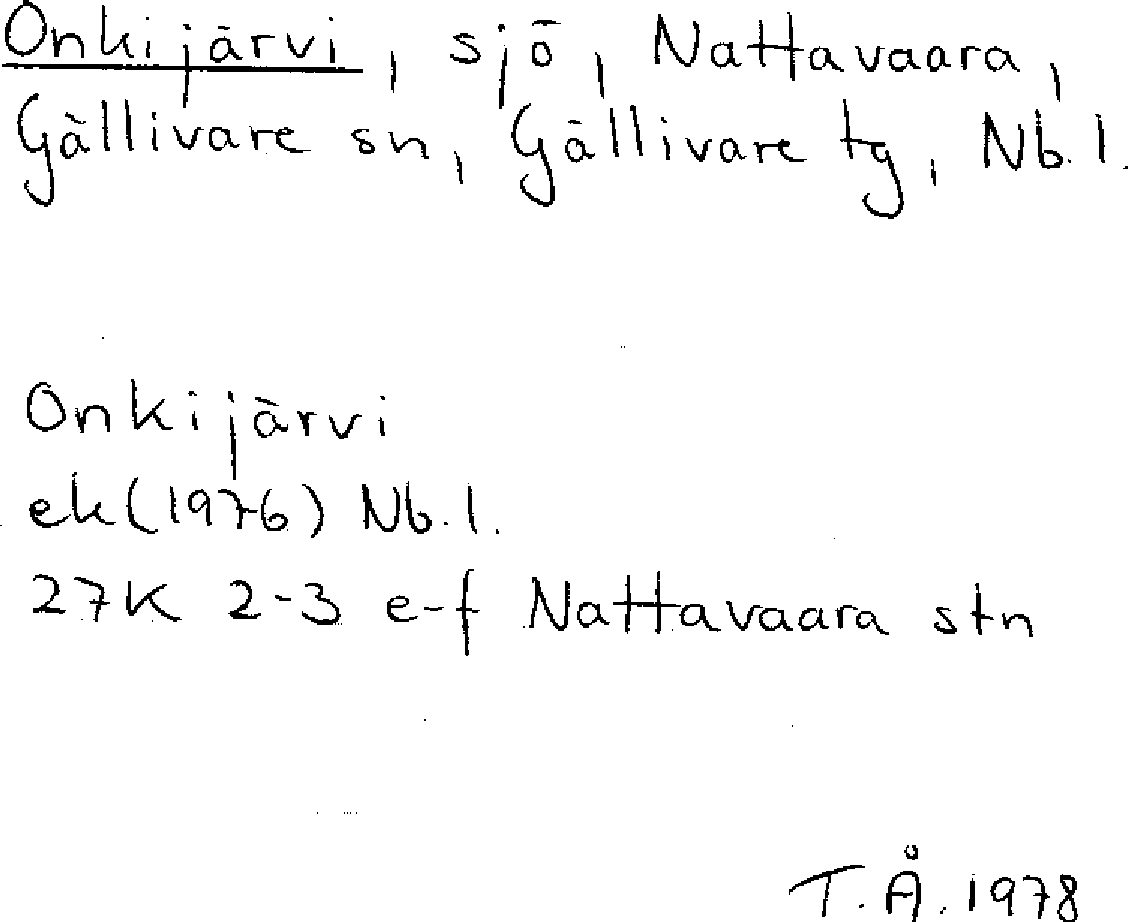 Onkijärvi, sjö, Nattavaara,
Gällivare sn, Gällivare tg, Nb.l.
Onkijärvi
ek(1976) Nb.l.
27K 2-3 e-f Nattavaara stn
T.Å.1978